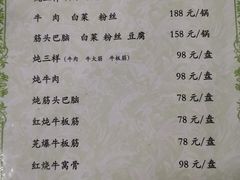 牛肉 白菜 粉丝 188 元/锅
筋头巴脑 白菜 粉丝 豆腐 158 元/锅
炖三样（牛肉 牛大筋 牛板筋） 98 元/盘
炖牛肉 98 元/盘
炖筋头巴脑 78 元/盘
红炖牛板筋 78 元/盘
芫爆牛板筋 78 元/盘
红烧牛窝骨 98 元/盘